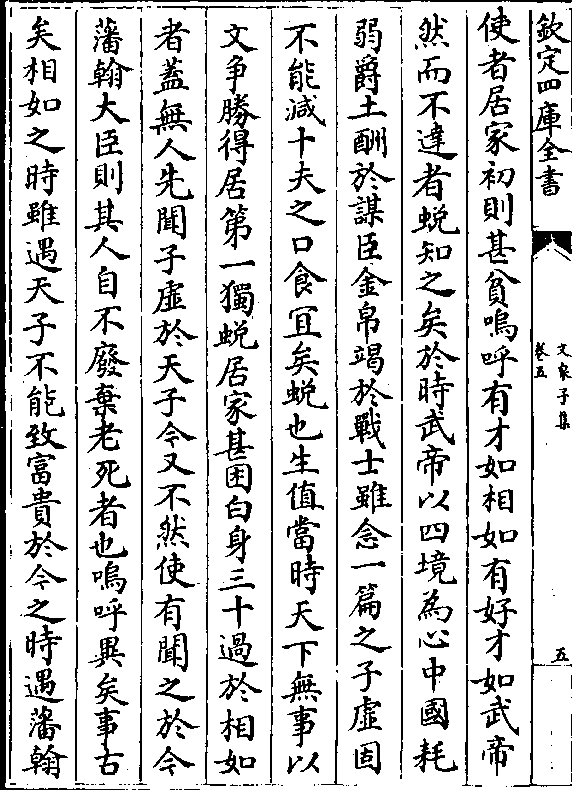 欽定四庫全書
文泉子集
卷五
五
使者居家初則甚貧嗚呼有才如相如有好才如武帝
然而不達者蛻知之矣於時武帝以四境為心中國耗
弱爵土酬於謀臣金帛竭於戰士雖念一篇之子虛固
不能減十夫之口食冝矣蛻也生值當時天下無事以
文争勝得居第一獨蛻居家甚困白身三十過於相如
者蓋無人先聞子虛於天子今又不然使有聞之於今
藩翰大臣則其人自不廢棄老死者也嗚呼異矣事古
矣相如之時雖遇天子不能致富貴於今之時遇藩翰